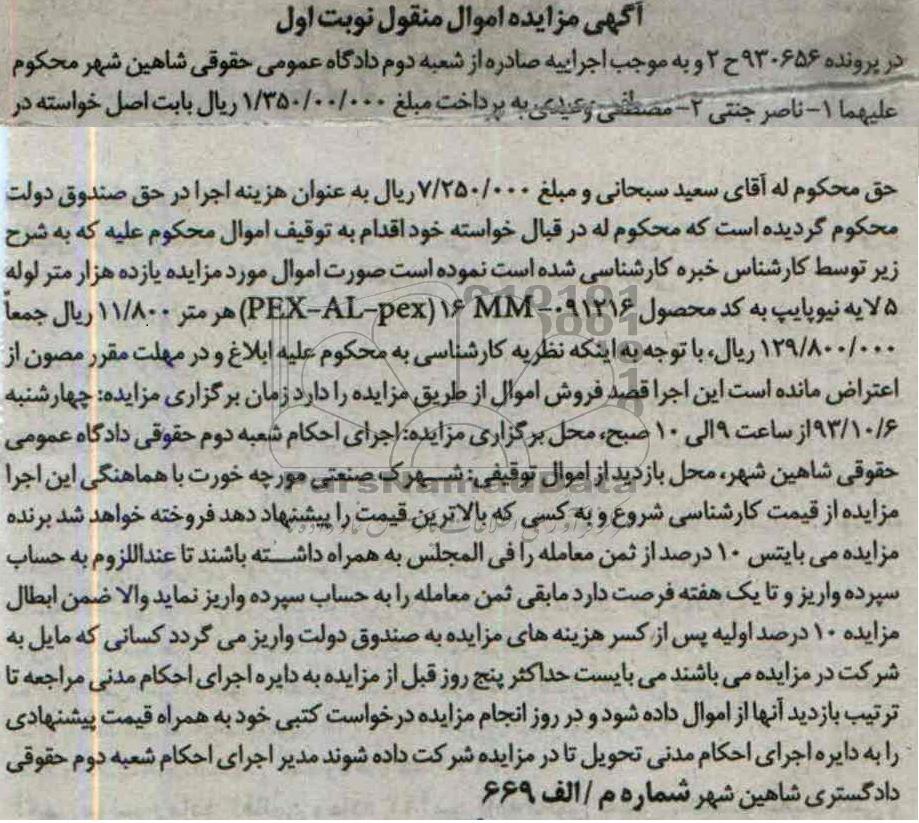 آگهی مزایده اموال منقول نوبت اول
در پرونده ۹۳۰۶۵۶ ح ۲ و به موجب اجراییه صادره از شعبه دوم دادگاه عمومی حقوقی شاهین شهر محکوم
علیهما ۱- ناصر جنتی ۲- مصطفی وعیدی به پرداخت مبلغ ۱/۳۵۰/۰۰/۰۰۰ ریال بابت اصل خواسته در
حق محکوم له آقای سعید سبحانی و مبلغ ۷/۲۵۰/۰۰۰ریال به عنوان هزینه اجرا در حق صندوق دولت
محکوم گردیده است که محکوم له در قبال خواسته خود اقدام به توقیف اموال محکوم علیه که به شرح
زیر توسط کارشناس خبره کارشناسی شده است نموده است صورت اموال مورد مزایده یازده هزار متر لوله
۵ لایه نیوپایپ به کد محصول ۰۹۱۲۱۶-۱۶ MM (PEX-AL-pex) هر متر ۱۱/۸۰۰ ریال جمعاً
۱۲۹/۸۰۰/۰۰۰ ریال، با توجه به اینکه نظریه کارشناسی به محکوم علیه ابلاغ و در مهلت مقرر مصون از
اعتراض مانده است این اجرا قصد فروش اموال از طریق مزایده را دارد زمان برگزاری مزایده: چهارشنبه
۹۳/۱۰/۶از ساعت ۹الی ۱۰ صبح، محل برگزاری مزایده: اجرای احکام شعبه دوم حقوقی دادگاه عمومی
حقوقی شاهین شهر، محل بازدید از اموال توقیفی: شهرک صنعتی مورچه خورت با هماهنگی این اجرا
مزایده از قیمت کارشناسی شروع و به کسی که بالاترین قیمت را پیشنهاد دهد فروخته خواهد شد برنده
مزایده می بایتس ۱۰ درصد از ثمن معامله را فی المجلس به همراه داشته باشند تا عنداللزوم به حساب
سپرده واریز و تا یک هفته فرصت دارد مابقی ثمن معامله را به حساب سپرده واریز نماید والا ضمن ابطال
مزایده ۱۰ درصد اولیه پس از کسر هزینه های مزایده به صندوق دولت واریز می گردد کسانی که مایل به
شرکت در مزایده می باشند می بایست حداکثر پنج روز قبل از مزایده به دایره اجرای احکام مدنی مراجعه تا
ترتیب بازدید آنها از اموال داده شود و در روز انجام مزایده درخواست کتبی خود به همراه قیمت پیشنهادی
را به دایره اجرای احکام مدنی تحویل تا در مزایده شرکت داده شوند مدیر اجرای احکام شعبه دوم حقوقی
دادگستری شاهین شهر شماره م /الف ۶۶۹
ParsNamadData